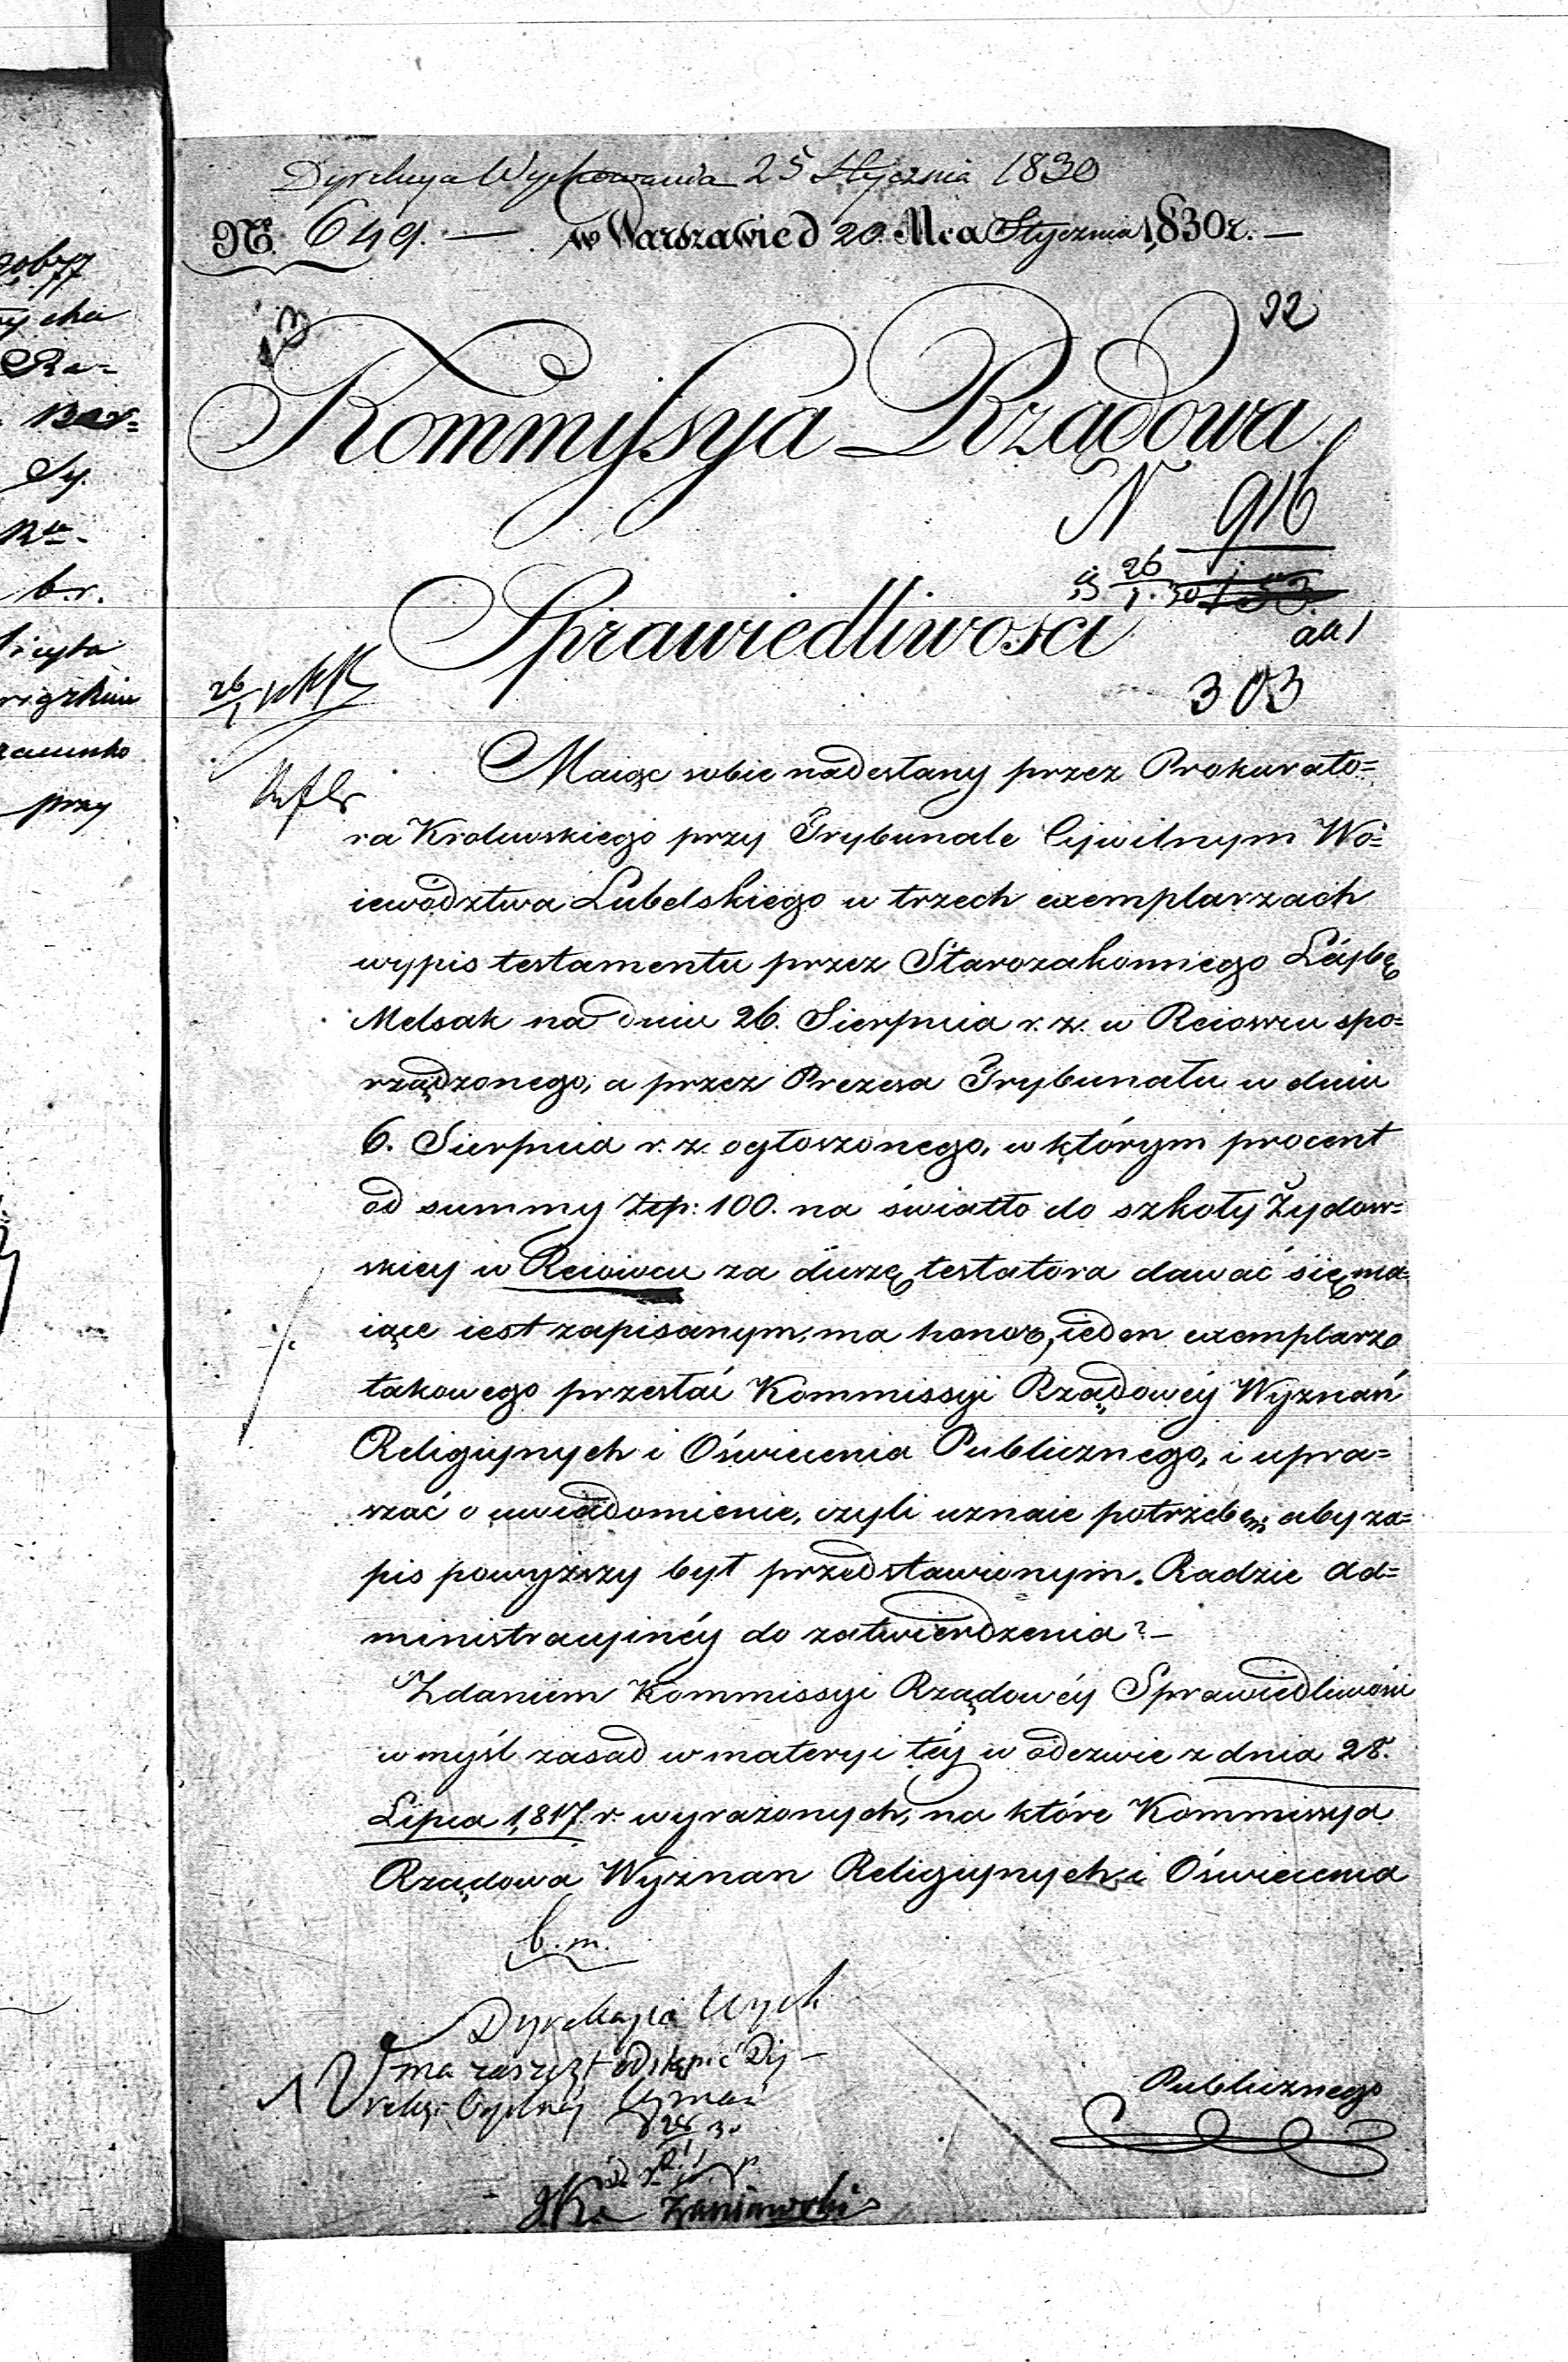 Dyrekcya Wychowania 25 Stycznia 1830
No. 649. — w Warszawie d 20 Mca Stycznia 1830 r. —
32
Kommissya Rządowa
N 916
26
303
Sprawiedliwości
26
Maiąc sobie nadesłany przez Prokurato=
ra Krolewskiego przy Trybunale Cywilnym Wo=
iewództwa Lubelskiego w trzech exemplarzach
wypis testamentu przez Starozakonnego Leybę
Melsak na dniu 26. Sierpnia r. z. w Reiowcu spo=
rządzonego, a przez Prezesa Trybunału w dniu
6. Sierpnia r. z. ogłoszonego, w którym procent
od summy Złp: 100. na światło do szkoły Żydow=
skiey w Reiowcu za duszę testatora dawać się ma=
iące iest zapisanym, ma honor, ieden exemplarz
takowego przesłać Kommissyi Rządowéy Wyznań
Religiynych i Oświecenia Publicznego, i upra=
szać o uwiadomienie, czyli uznaie potrzebę, aby za=
pis powyższy był przedstawionym Radzie Ad=
ministracyinéy do zatwierdzenia? —
Zdaniem Kommissyi Rządowéy Sprawiedliwości
w myśl zasad w materyi téy w odezwie z dnia 28.
Lipca 1817. r. wyrażonych, na które Kommissya
Rządowa Wyznan Religiynych i Oświecenia
b. m.
Dyrekcyia Wych
ma zaszczyt odstąpić Dy-
rekcyi Wyznań
Publicznego
Zaniewski